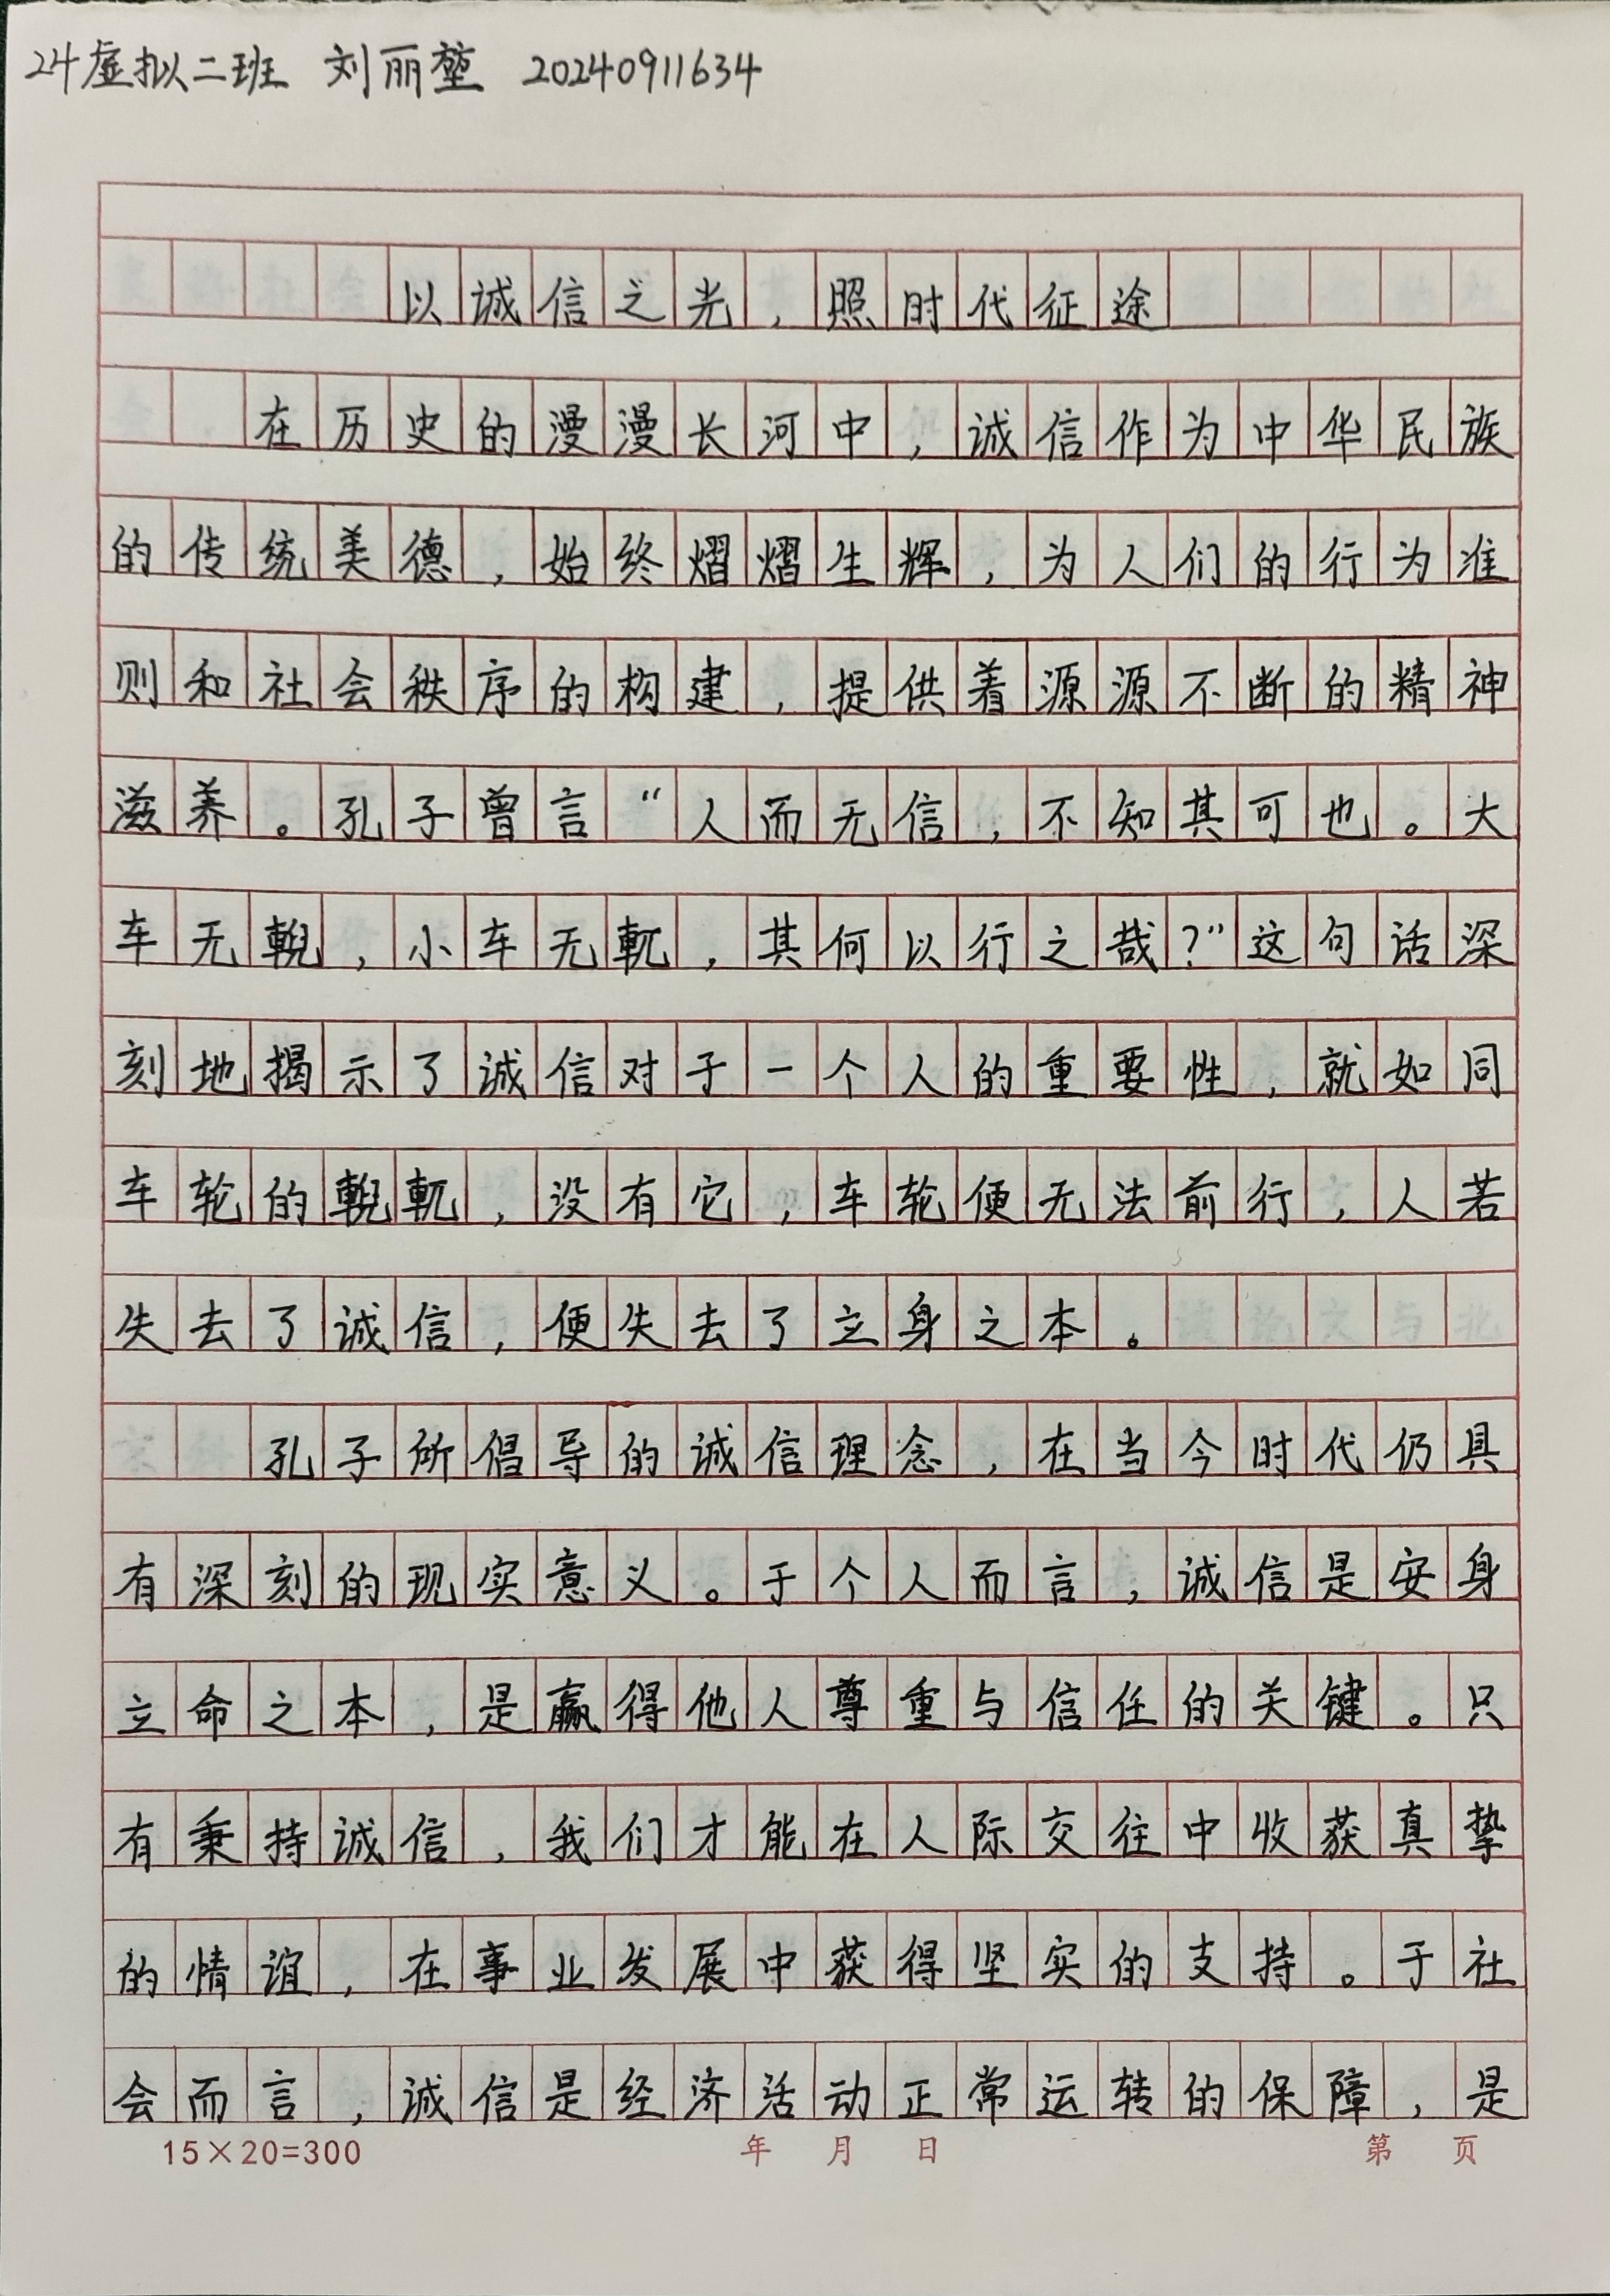 24虚拟二班 刘丽堃 20240911634
以诚信之光,照时代征途
在历史的漫漫长河中,诚信作为中华民族
的传统美德,始终熠熠生辉,为人们的行为准
则和社会秩序的构建,提供着源源不断的精神
滋养。孔子曾言“人而无信,不知其可也。大
车无輗,小车无軏,其何以行之哉?”这句话深
刻地揭示了诚信对于一个人的重要性,就如同
车轮的輗軏,没有它,车轮便无法前行,人若
失去了诚信,便失去了立身之本。
孔子所倡导的诚信理念,在当今时代仍具
有深刻的现实意义。于个人而言,诚信是安身
立命之本,是赢得他人尊重与信任的关键。只
有秉持诚信,我们才能在人际交往中收获真挚
的情谊,在事业发展中获得坚实的支持。于社
会而言,诚信是经济活动正常运转的保障,是
15×20=300 年 月 日 第 页